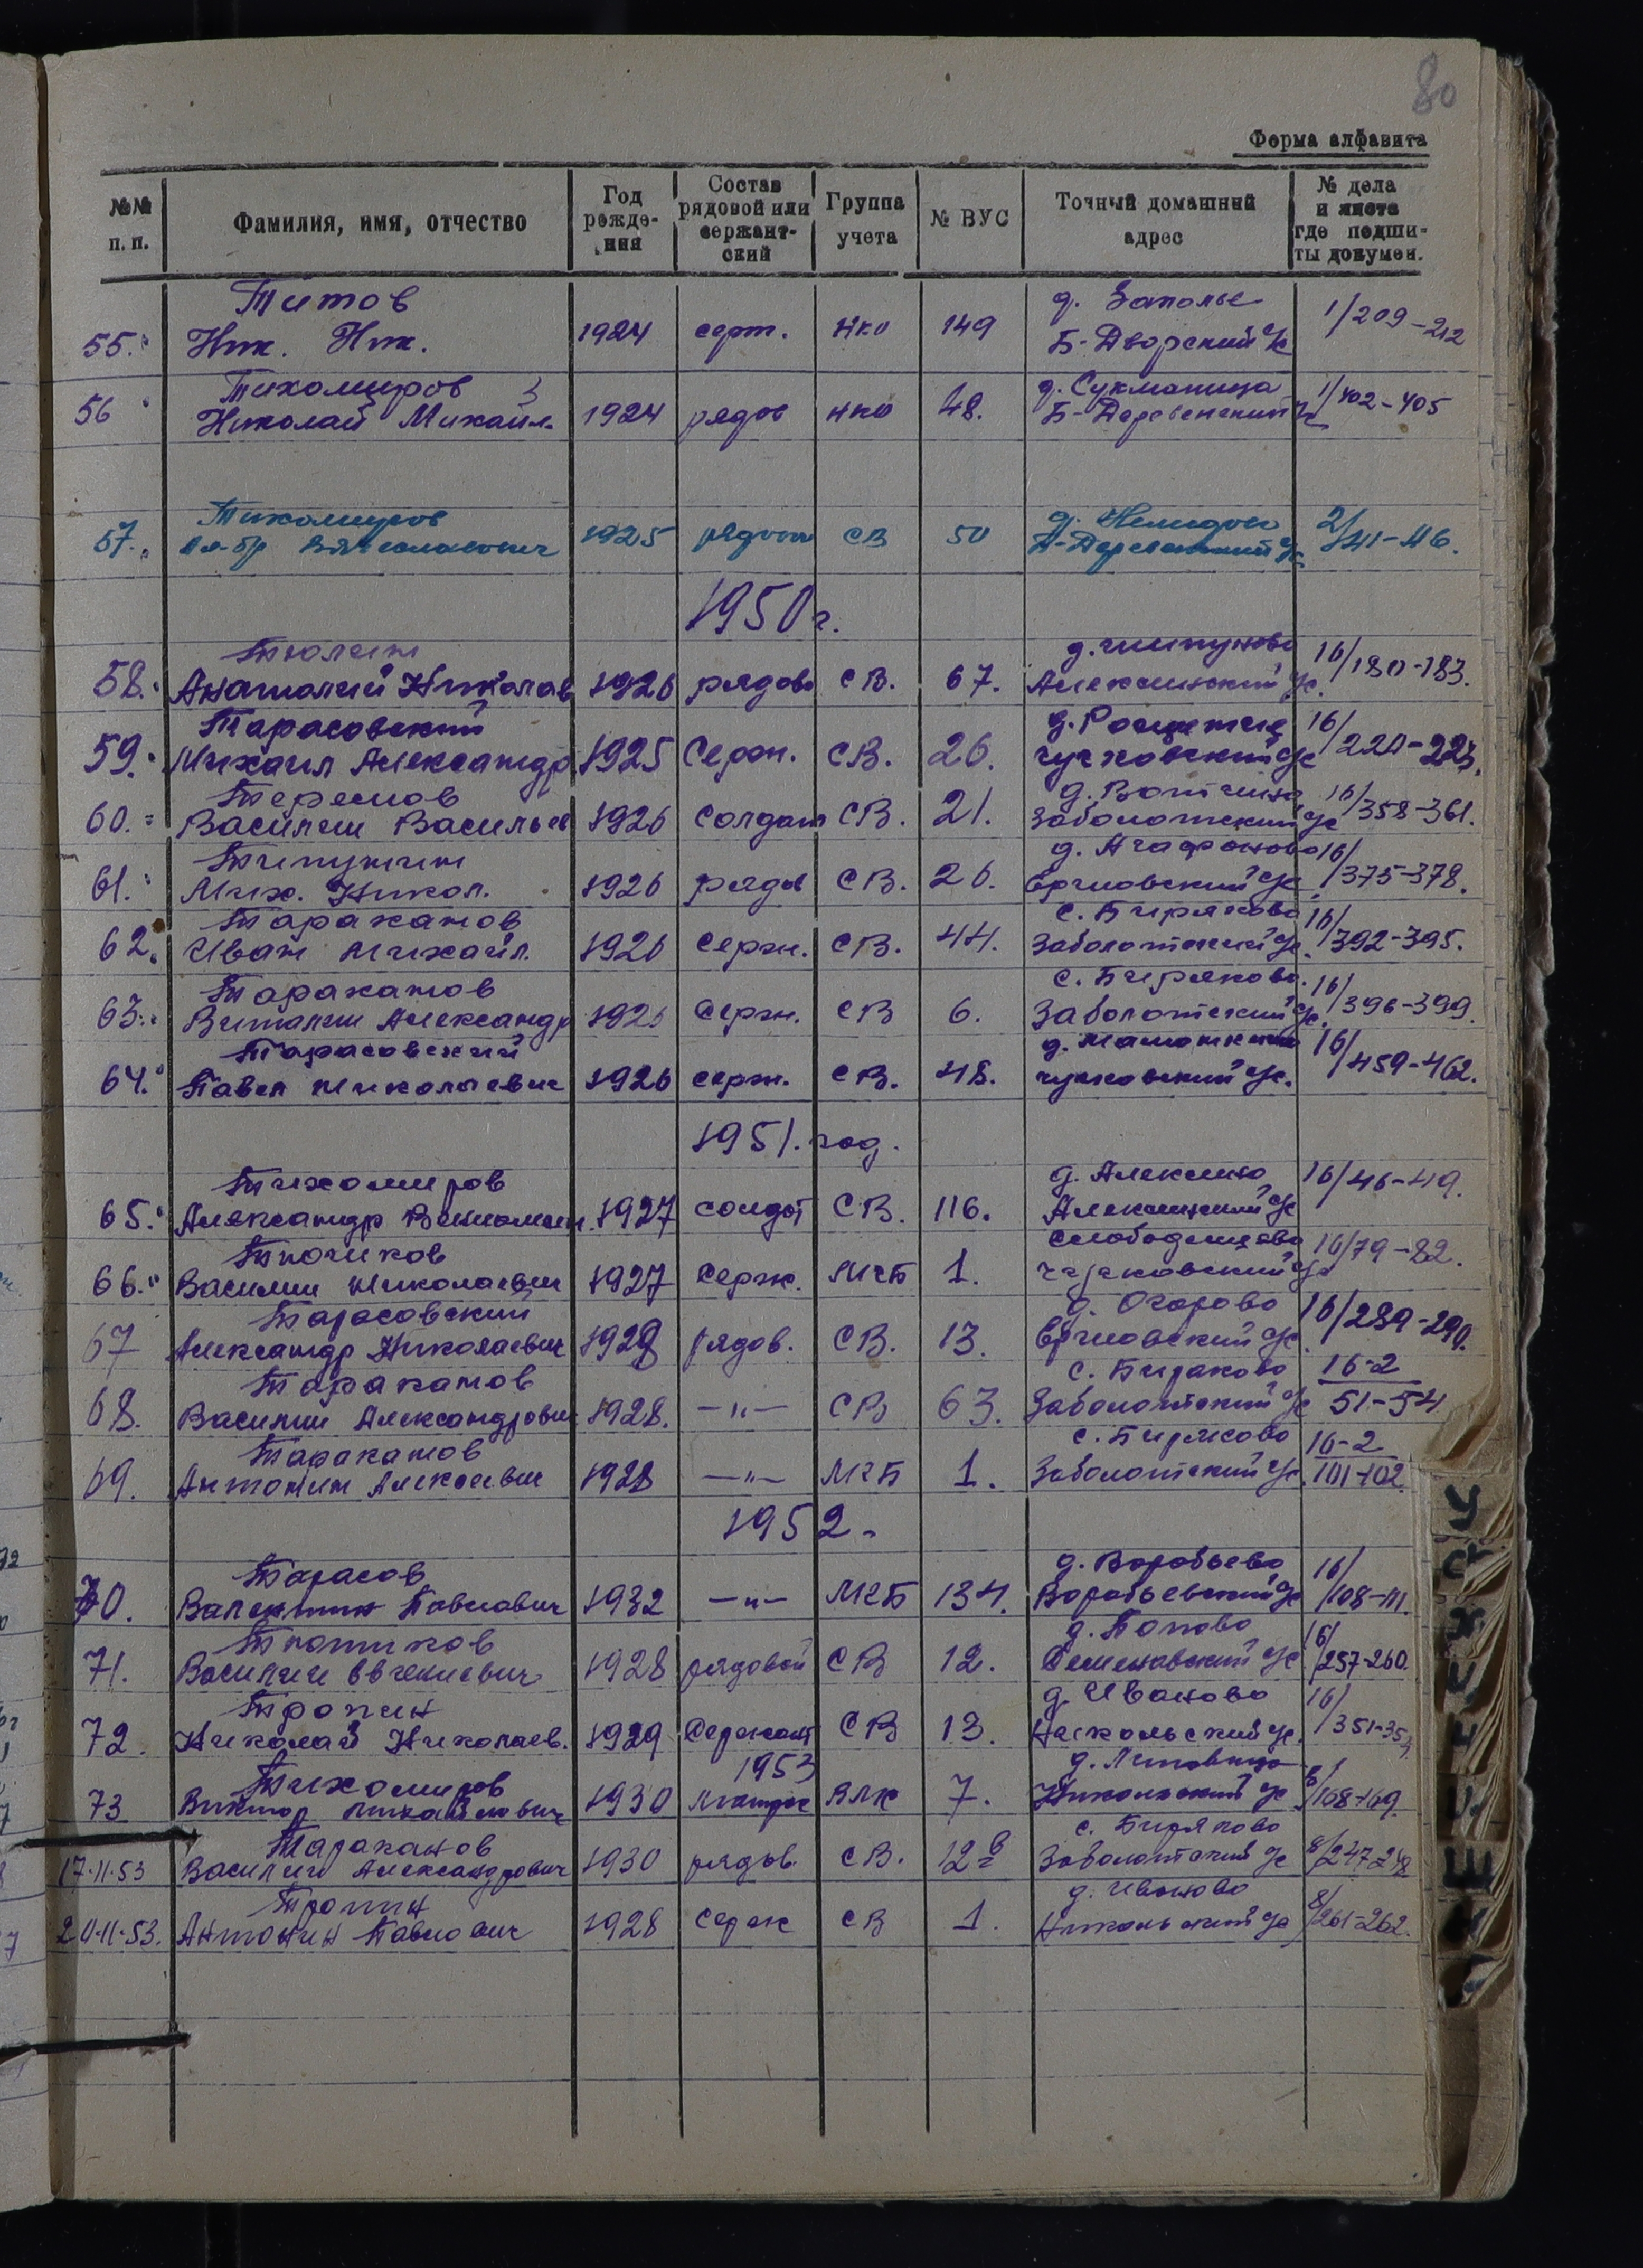 80
Форма алфавита
№№ п. п. Фамилия, имя, отчество Год рожде-ния Состав рядовой или сержант-ский Группа учета № ВУС Точный домашний адрес № дела и листа где подши-ты докумен.
Титов д. Заполье
55. Ник. Ник. 1924 серж. НКО 149 Б-Дворский с/с 1/209-212
Тихомиров д. Сукманица
56 Николай Михайл. 1924 рядов НКО 48. Б-Деревенский 1/402-405
Тихомиров
57. Вячеславович 1925 рядовой СВ 50 2/41-46.
1950 г.
Тюлин
58. Анатолий Николаев 1926 рядово СВ. 67. Алексинский с/с. 16/180-183.
Тарасовский
59. Михаил Александр 1925 Серж. СВ. 26. Чучковский с/с 16/220-223.
Теремов д. Вотчина
60. Василий Васильев 1926 Солдат СВ. 21. Заболотский с/с 16/358-361.
д. Агафоново
61. Мих. Никол. 1926 рядов СВ. 26. с/с 16/375-378.
Тараканов с. Биряково
62. Иван Михайл. 1926 Серж. СВ. 44. Заболотский с/с. 16/392-395.
Тараканов с. Биряково.
63. Виталий Александр 1926 Серж. СВ 6. Заболотский с/с. 16/396-399.
Тарасовский
64. Павел Николаевич 1926 серж. СВ. 48. Чучковский с/с. 16/459-462.
1951. год.
Тихомиров д. Алексино
65. Александр 1927 солдат СВ. 116. Алексинский с/с 16/46-49.
66. Василий Николаевич 1927 Серж. МГБ 1. с/с 16/79-82.
Тарасовский д. Огарово
67 Александр Николаевич 1928 рядов. СВ. 13. с/с. 16/289-290.
Тараканов с. Биряково 16-2
68. Василий Александрович 1928. -"- СВ 63. Заболотский с/с 51-54
Тараканов с. Биряково 16-2
69. Антонин Алексеевич 1928 -"- МГБ 1. Заболотский с/с. 101-102.
1952.
Тарасов д. Воробьево
70. Валентин Павлович 1932 -"- МГБ 134. Воробьевский с/с 16/108-111.
д. Попово
71. Василий Евгениевич 1928 рядовой СВ 12. Семеновский с/с 16/257-260.
Тропин д. Иваново
72. Николай Николаев. 1929 Сержант СВ 13. Никольский с/с.
1953
Тихомиров
73 Виктор Михайлович 1930 матрос 7. Никольский с/с 168-169.
Тараканов с. Биряково
17.11.53 Василий Александрович 1930 рядов. СВ. 12 Заболотский с/с 8/247-248
Тропин д. Иваново
20.11.53. Антонин Павлович 1928 Серж СВ 1. Никольский с/с 8/261-262.